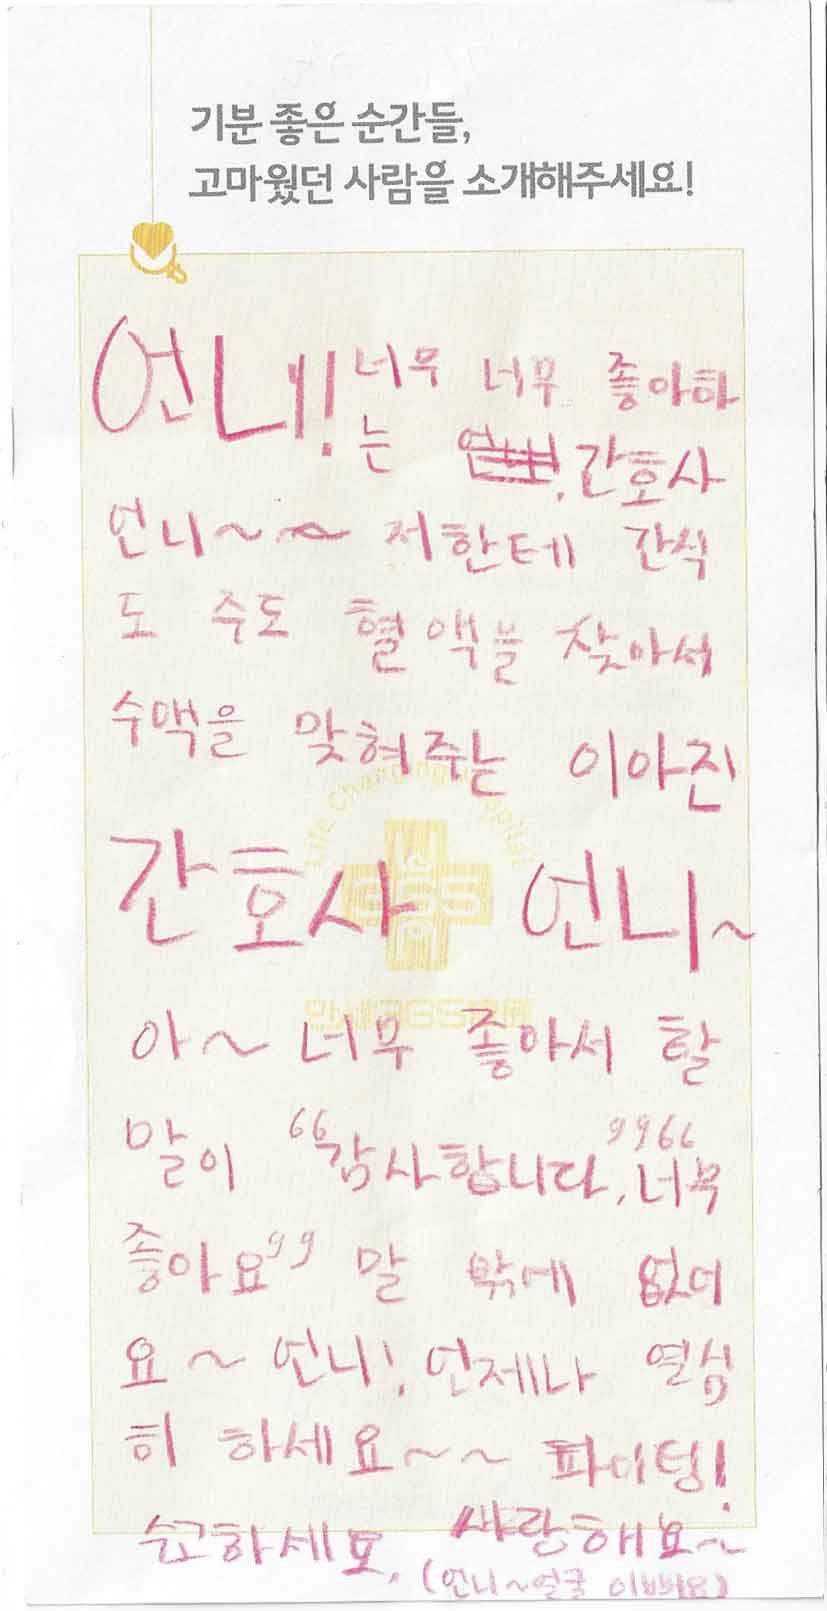 기분 좋은 순간들,
고마웠던 사람을 소개해주세요!
언니! 너무 너무 좋아하
는 간호사
언니~~ 저한테 간식
도 주도 혈액을 찾아서
수액을 맞혀주는 이아진
간호사 언니~
Life Changing Hospital
365
만세365병원
아~ 너무 좋아서 할
말이 "감사합니다, "너무
좋아요" 말 밖에 없어
요~ 언니! 언제나 열심
히 하세요~~ 파이팅!
수고하세요, 사랑해요~
(언니~얼굴 이뻐요)